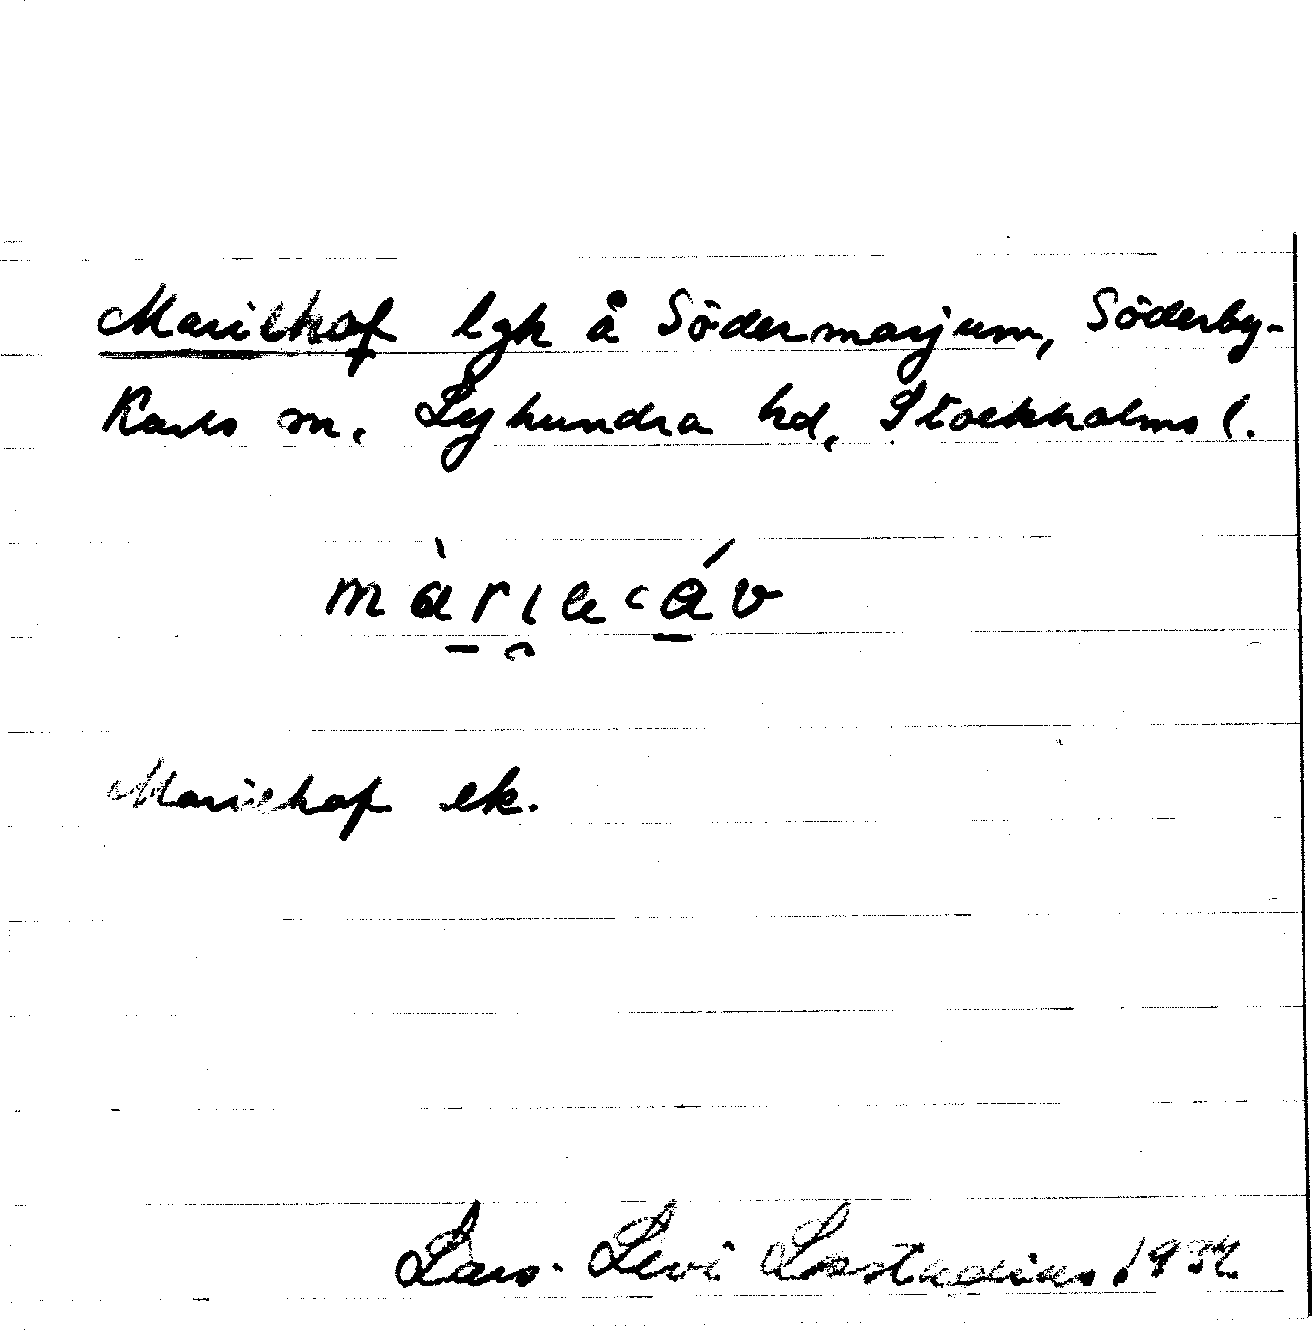 Mariehof lgh å Södermarjum, Söderby-
Karls sn, Lyhundra hd, Stockholms l.
màrιacáv
Mariehof ek.
Lars-Levi Læstadius 1934